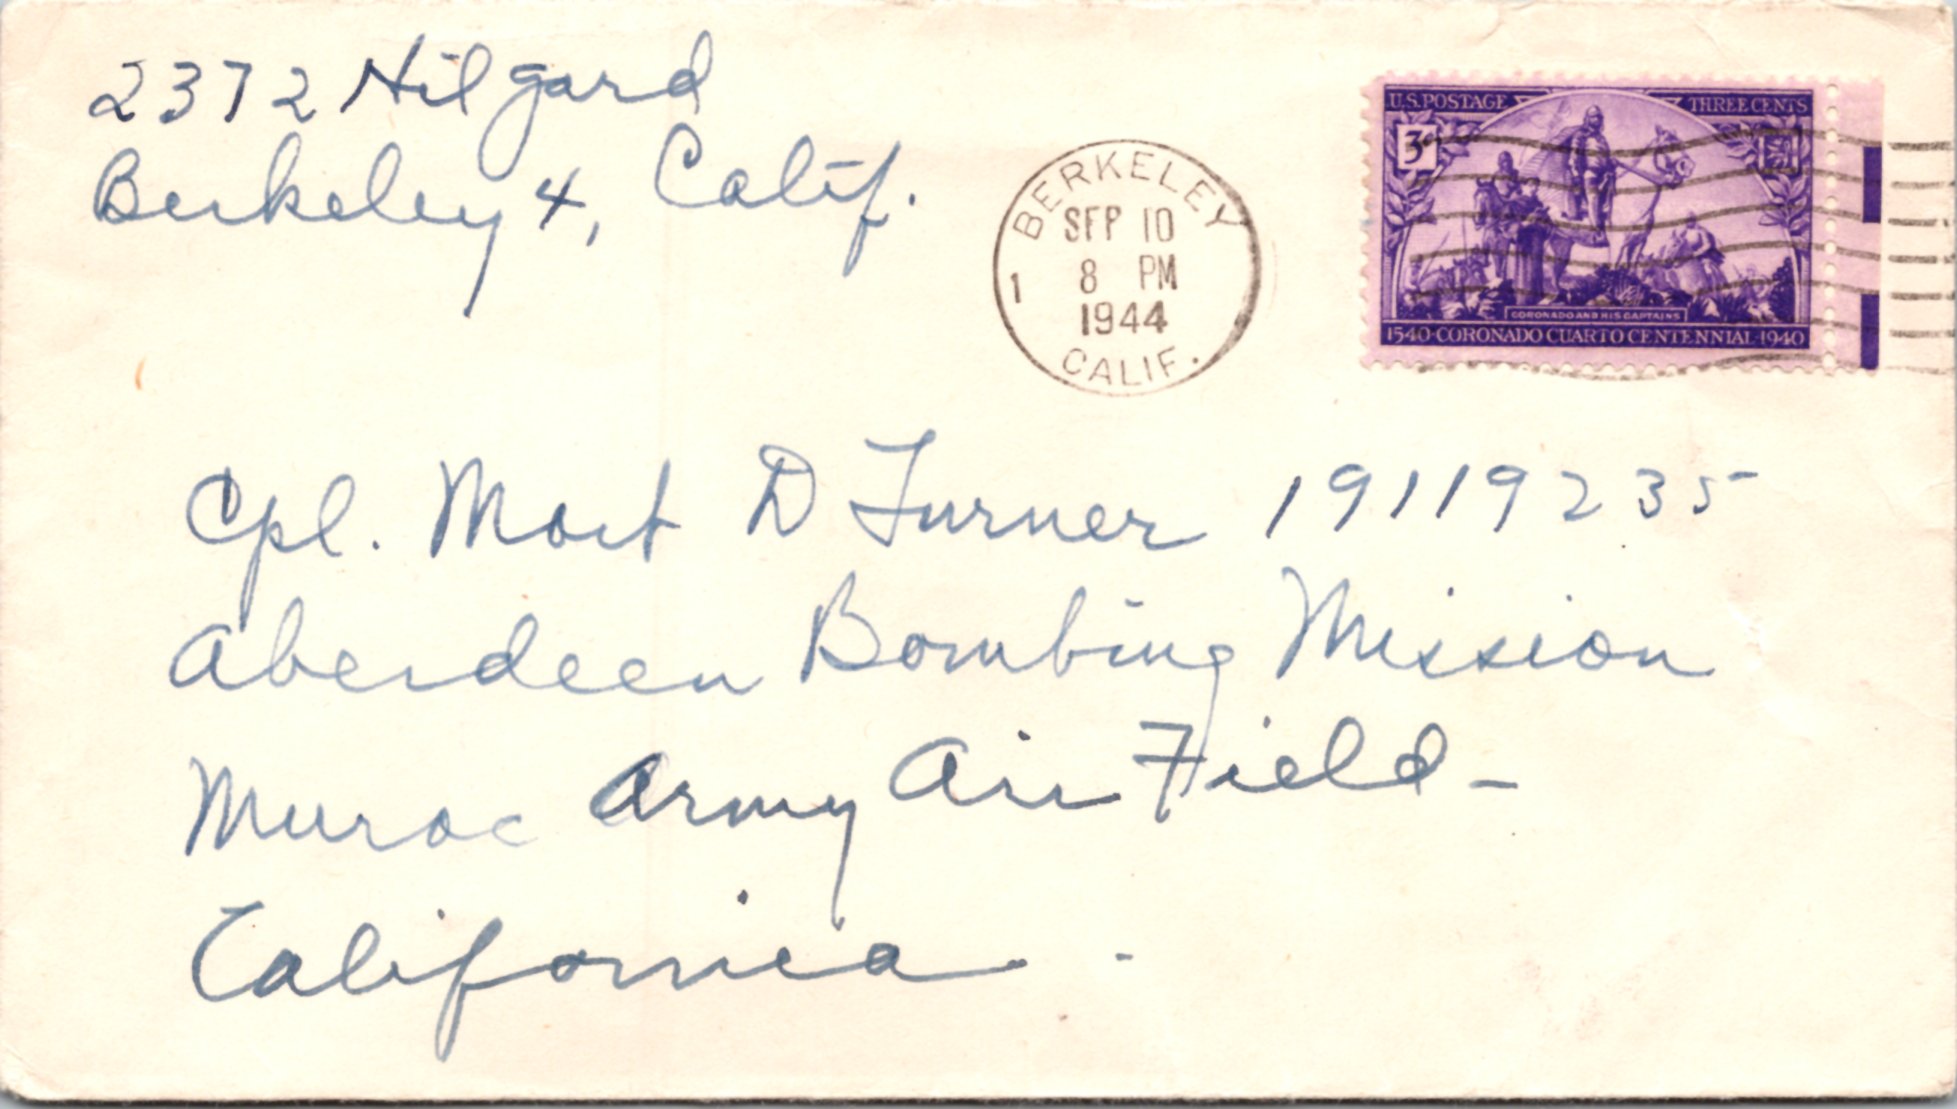 2372 Hilgard
Berkeley 4, Calif.
BERKELEY
SEP 10
8 PM
1944
1
CALIF.
U.S. POSTAGE THREE CENTS
3¢
CORONADO AND HIS CAPTAINS
1540·CORONADO CUARTO CENTENNIAL·1940
Cpl. Mort D Turner 19119235
Aberdeen Bombing Mission
Muroc Army Air Field -
California.